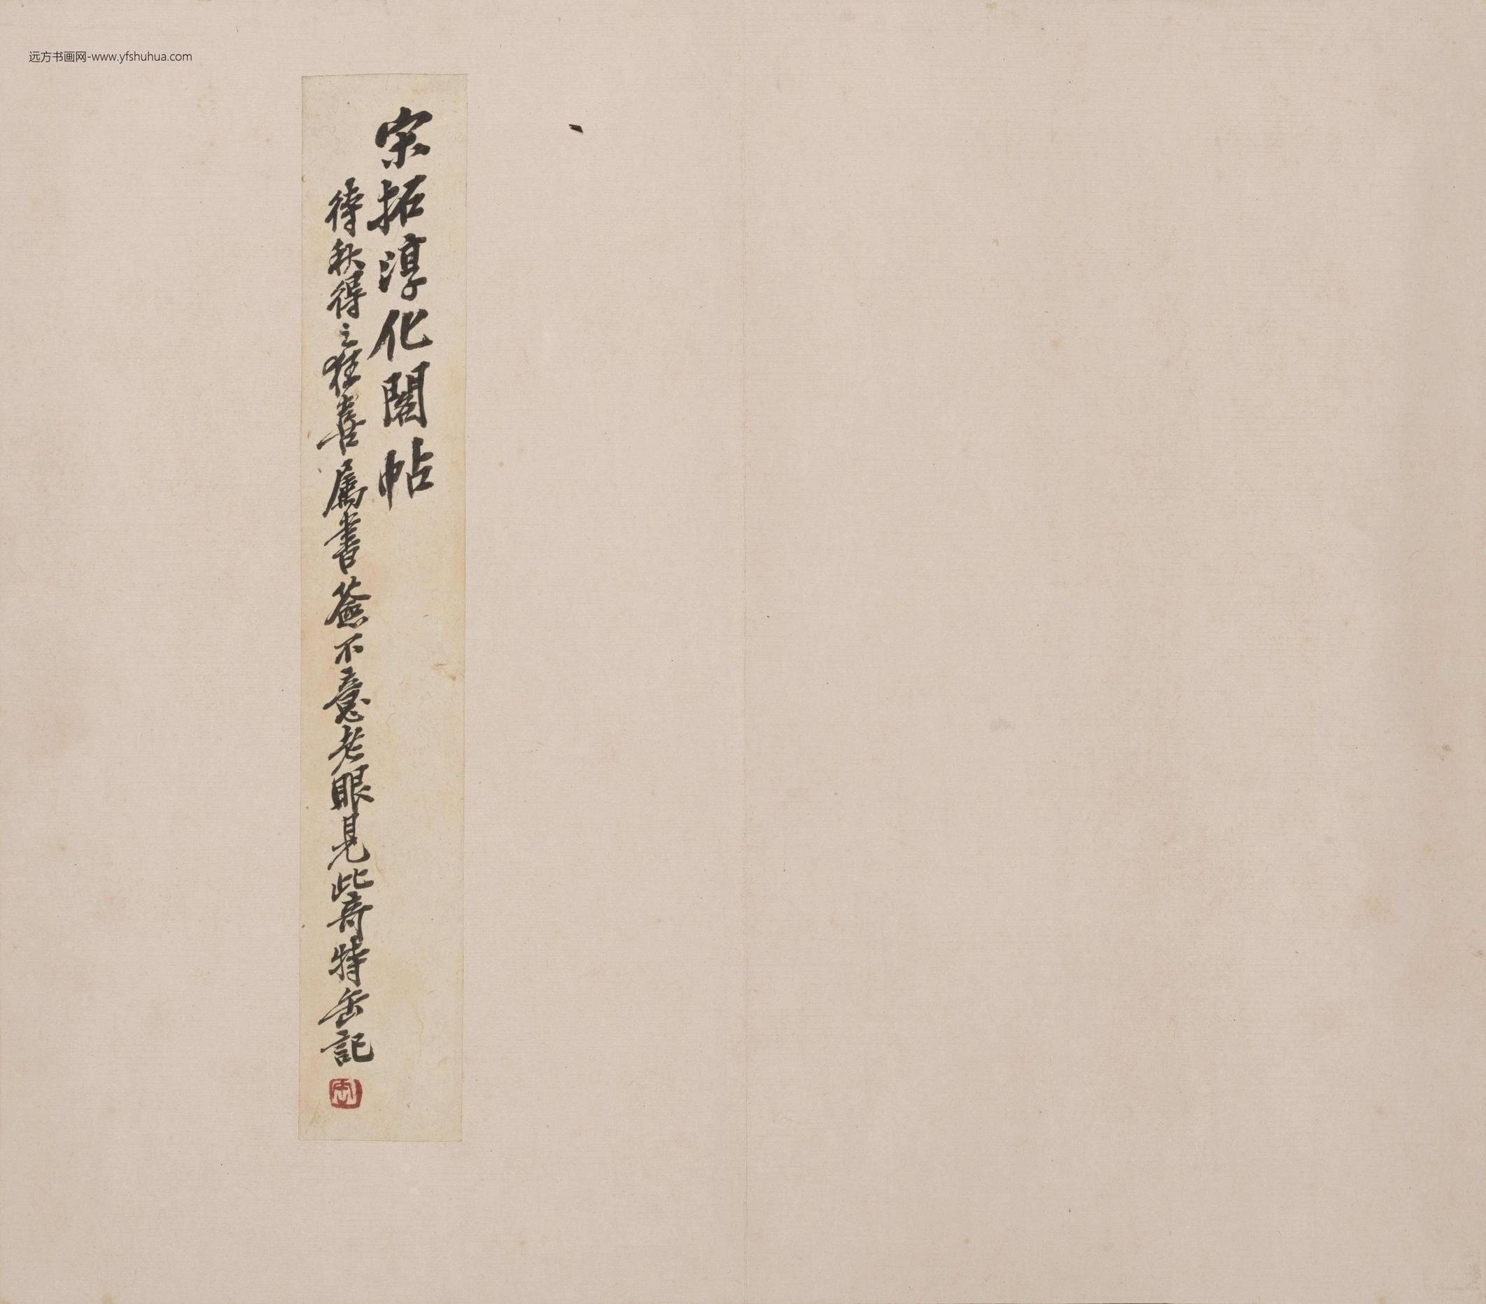 远方书画网-www.yfshuhua.com
宋拓淳化閣帖
待秋得之狂喜属書簽不意老眼見此奇特缶記
缶